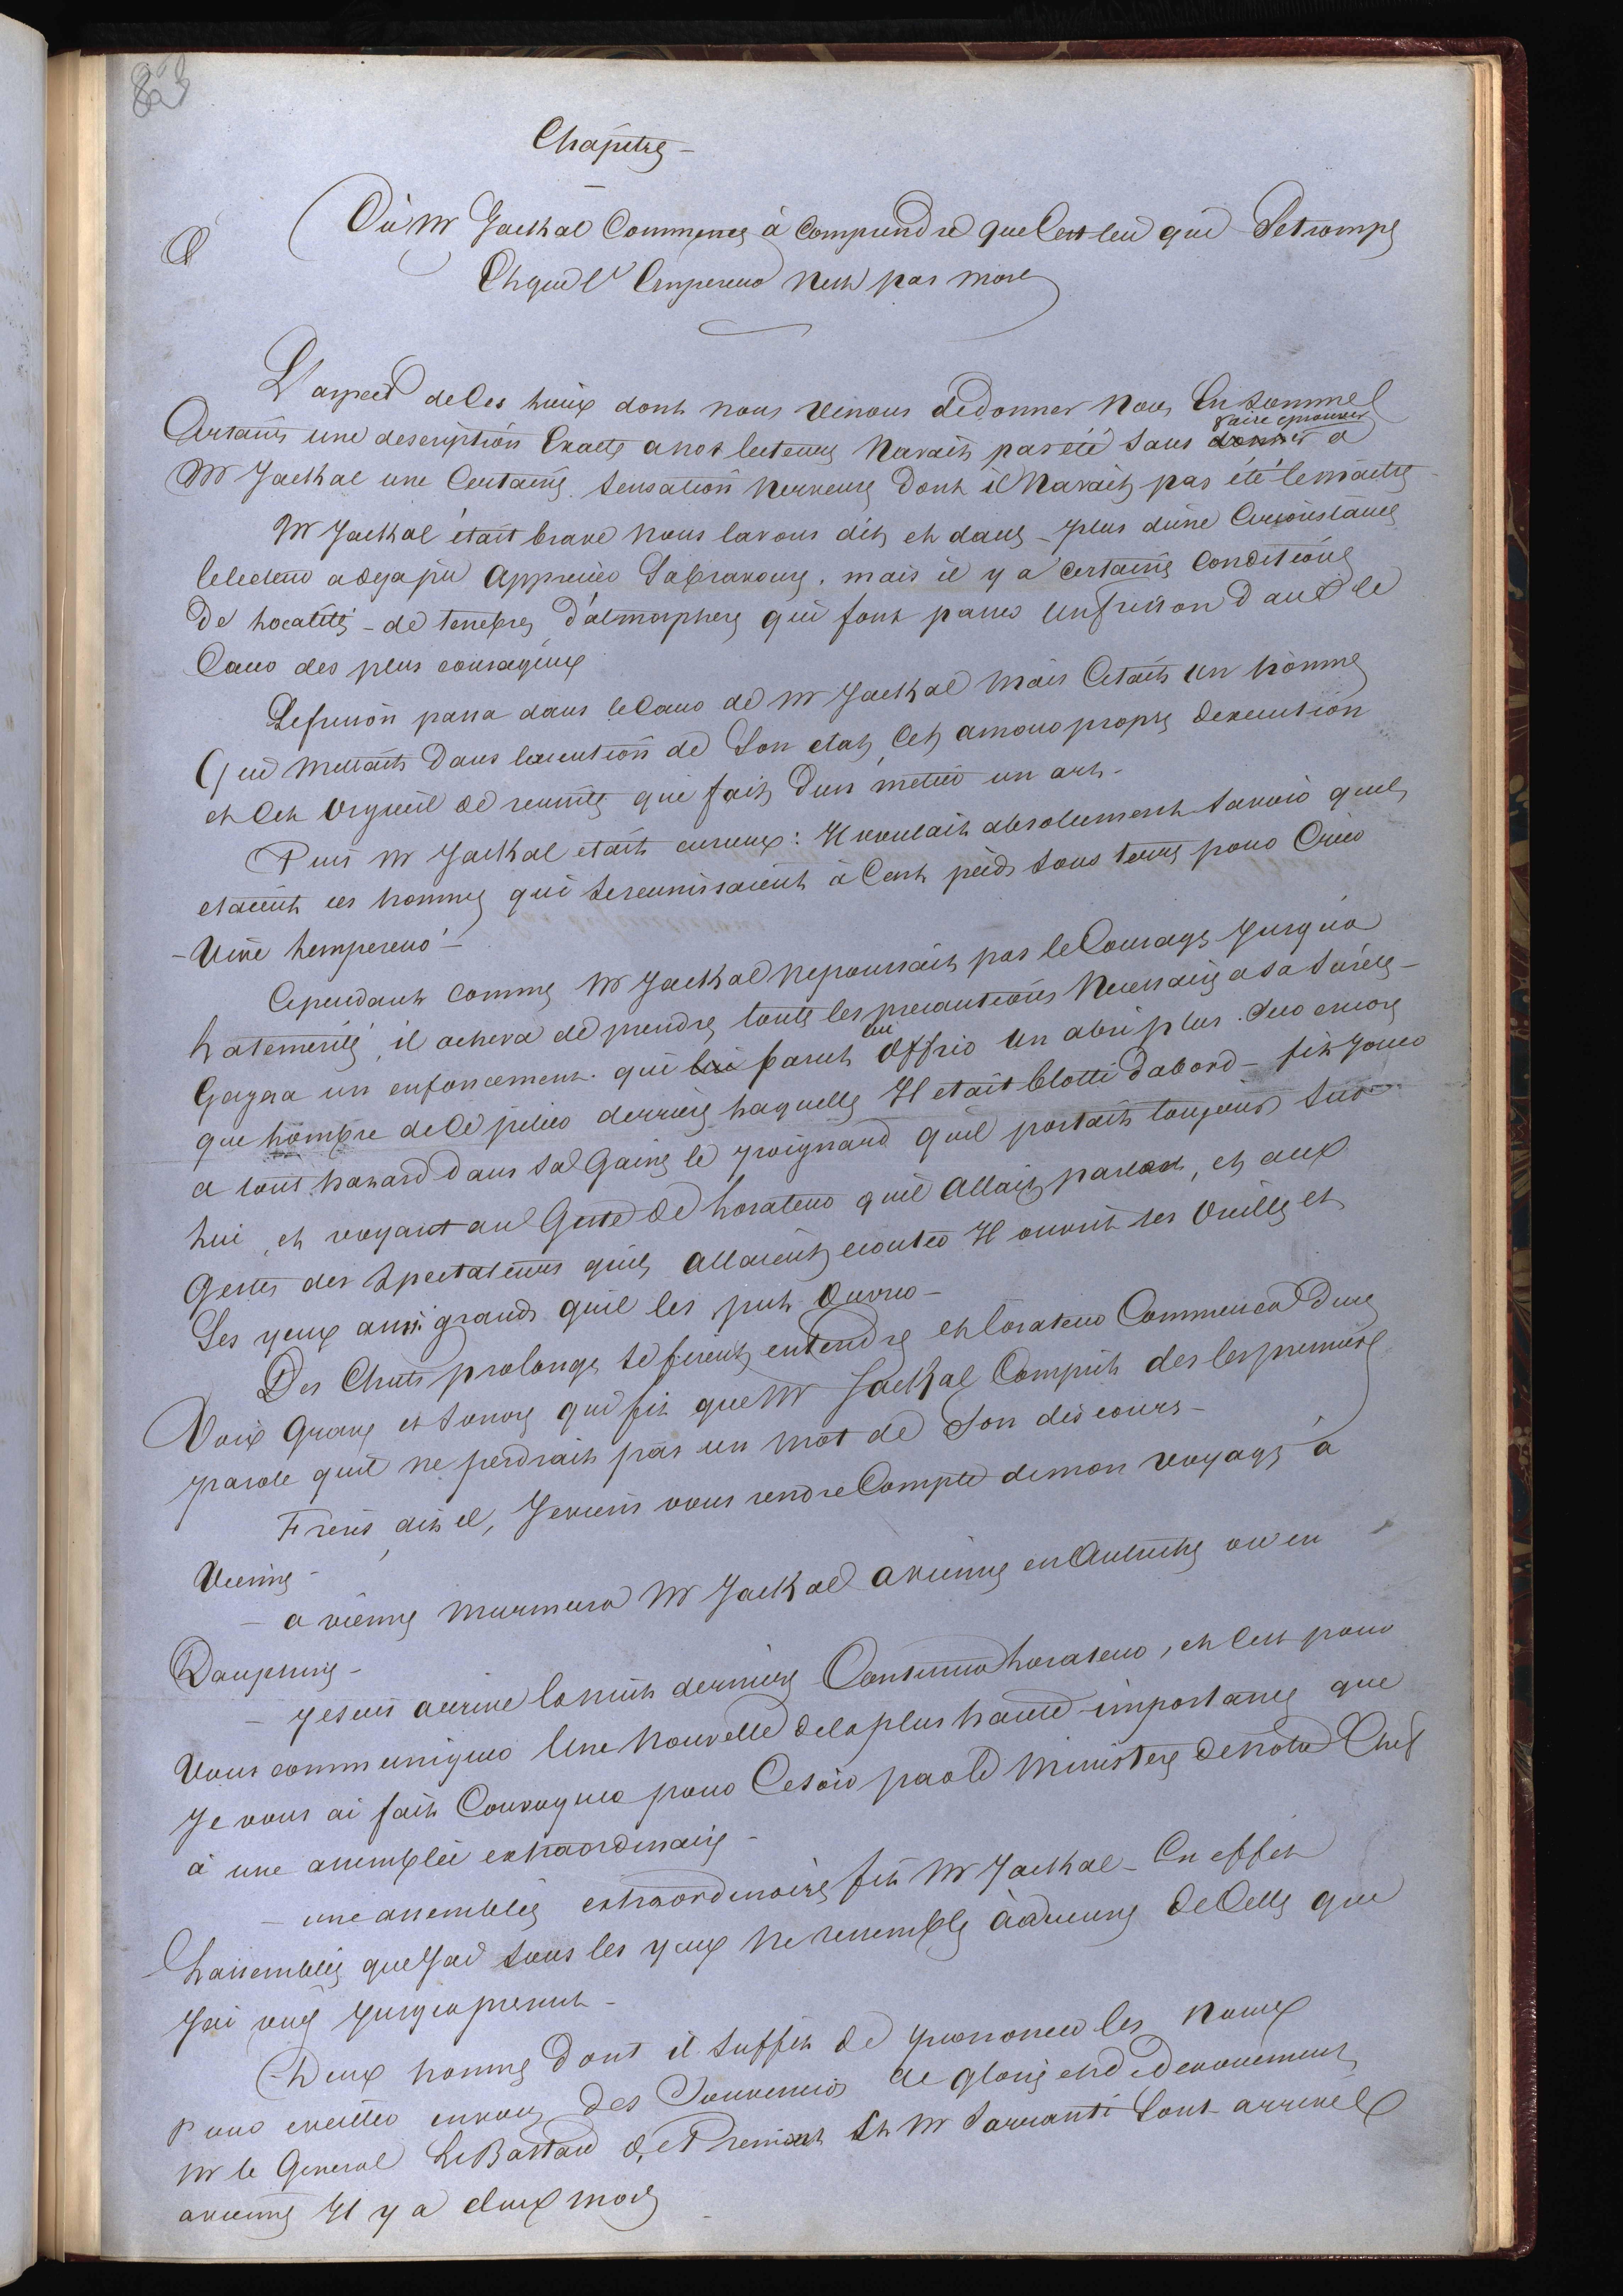 83
Chapitre –
Où Mr Jackal Commence à Comprendre que C'est lui qui Se trompe
Et que l'Empereur n'est pas mort
L'aspect de Ces lieux dont nous venons de donner nous En Sommes
Certains une description Exacte a nos lecteurs n'avait pas été sans faire eprouver a
Mr Jackal une Certaine sensation nerveuse dont il n'avait pas été le maitre
Mr Jackal était brave nous lavons dit, et dans – plus d'une Circonstance
le lecteur a deja pu Apprecier Sa bravoure. mais il y a certaines Conditions
De localité – de tenebres d'atmosphere qui font passer un frisson dans le
Cœur des plus courageux
Le frisson passa dans le Cœur de Mr Jackal Mais C'etait un homme
Qui Mettait Dans l'execution de Son etat, Cet amour propre d'execution
et Cet Orgueil de reussite qui fait d'un métier un art –
Puis Mr Jackal etait curieux : Il voulait absolument Savoir quels
etaient ces hommes qui se reunissaient à Cent pieds sous terre pour Crier
– Vive l'empereur –
Cependant comme Mr Jackal ne poussait pas le Courage Jusqu'a
la témérité, il acheva de prendre toutes les precautions Necessaires a sa sureté –
Gagna un enfoncement qui parut lui Offrir Un abri plus Sur encore
que l'ombre de Ce pilier derriere laquelle Il etait blotti d'abord – fit Jouer
a tout hasard Dans Sa Gaine le poignard quil portait toujours Sur
lui, et voyant au Geste de l'orateur qu'il Allait parler, et aux
Gestes des Spectateurs quils Allaient ecouter Il ouvrit ses Oreilles et
Ses yeux aussi grands quil les put Ouvrir –
Des Chuts prolongés se firent entendre et l'orateur Commença d'une
Voix Grave et Sonore qui fit que Mr Jackal Comprit des les premieres
parole quil ne perdrait pas un mot de Son discours –
Freres dit il, Je viens vous rendre Compte de mon voyage à
Vienne –
– a vienne murmura Mr Jackal a vienne en Autriche ou en
Dauphiné –
– Je suis arrivé la nuit derniere Continua l'orateur, et C'est pour
Vous communiquer Une Nouvelle de la plus haute importance que
Je vous ai fait Convoquer pour Ce soir par le Ministere de notre Chef
à une assemblée extraordinaire –
– une assemblée extraordinaire fit Mr Jackal – En effet
L'assemblée que J'ai sous les yeux ne ressemble à aucune de Celles que
J'ai vues Jusqu'a present –
– Deux hommes Dont il Suffit de prononcer les noms
Pour eveiller en vous des Souvenirs de gloire et de devouement
Mr le General LeBastard de Premont Et Mr Sarranti Sont arrivés
a vienne Il y a deux mois